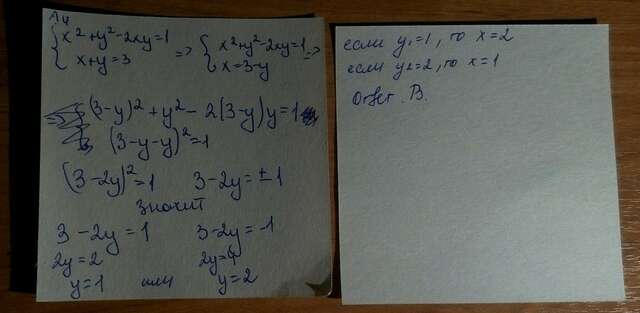 А4
{x²+y²-2xy=1 => {x²+y²-2xy=1 =>
{x+y=3 {x=3-y
(3-y)²+y²-2(3-y)y=1
(3-y-y)²=1
(3-2y)²=1 3-2y=±1
значит
3-2y=1 3-2y=-1
2y=2 2y=4
y=1 или y=2
если y₁=1, то x=2
если y₂=2, то x=1
Ответ. В.